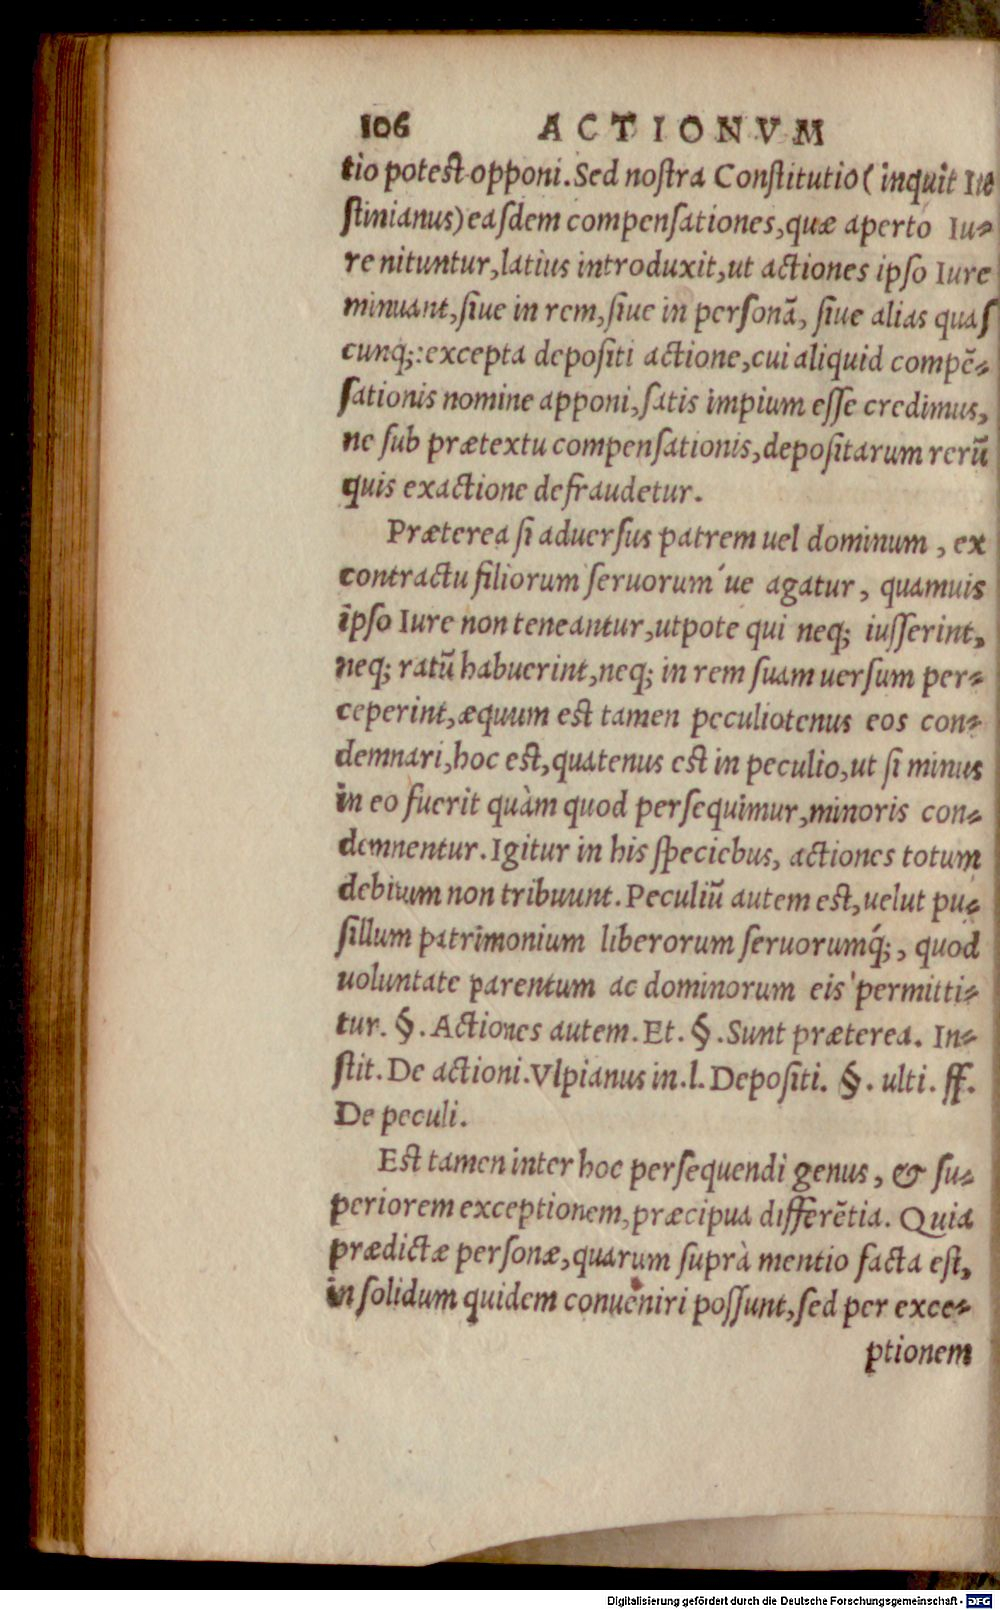 106 ACTIONVM
tio potest opponi. Sed nostra Constitutio (inquit Iu
stinianus) easdem compensationes, quæ aperto Iu-
re nituntur, latius introduxit, ut actiones ipso Iure
minuant, siue in rem, siue in personã, siue alias quas
cunq;: excepta depositi actione, cui aliquid compẽ-
sationis nomine apponi, satis impium esse credimus,
ne sub prætextu compensationis, depositarum rerũ
quis exactione defraudetur.
Præterea si aduersus patrem uel dominum, ex
contractu filiorum seruorum´ue agatur, quamuis
ipso Iure non teneantur, utpote qui neq; iusserint,
neq; ratũ habuerint, neq; in rem suam uersum per-
ceperint, æquum est tamen peculiotenus eos con-
demnari, hoc est, quatenus est in peculio, ut si minus
in eo fuerit quàm quod persequimur, minoris con-
demnentur. Igitur in his speciebus, actiones totum
debitum non tribuunt. Peculiũ autem est, uelut pu-
sillum patrimonium liberorum seruorumq́;, quod
uoluntate parentum ac dominorum eis permitti-
tur. §. Actiones autem. Et. §. Sunt præterea. In-
stit. De actioni. Vlpianus in. l. Depositi. §. ulti. ff.
De peculi.
Est tamen inter hoc persequendi genus, & su-
periorem exceptionem, præcipua differẽtia. Quia
prædictæ personæ, quarum suprà mentio facta est,
in solidum quidem conueniri possunt, sed per exce-
ptionem
Digitalisierung gefördert durch die Deutsche Forschungsgemeinschaft - DFG